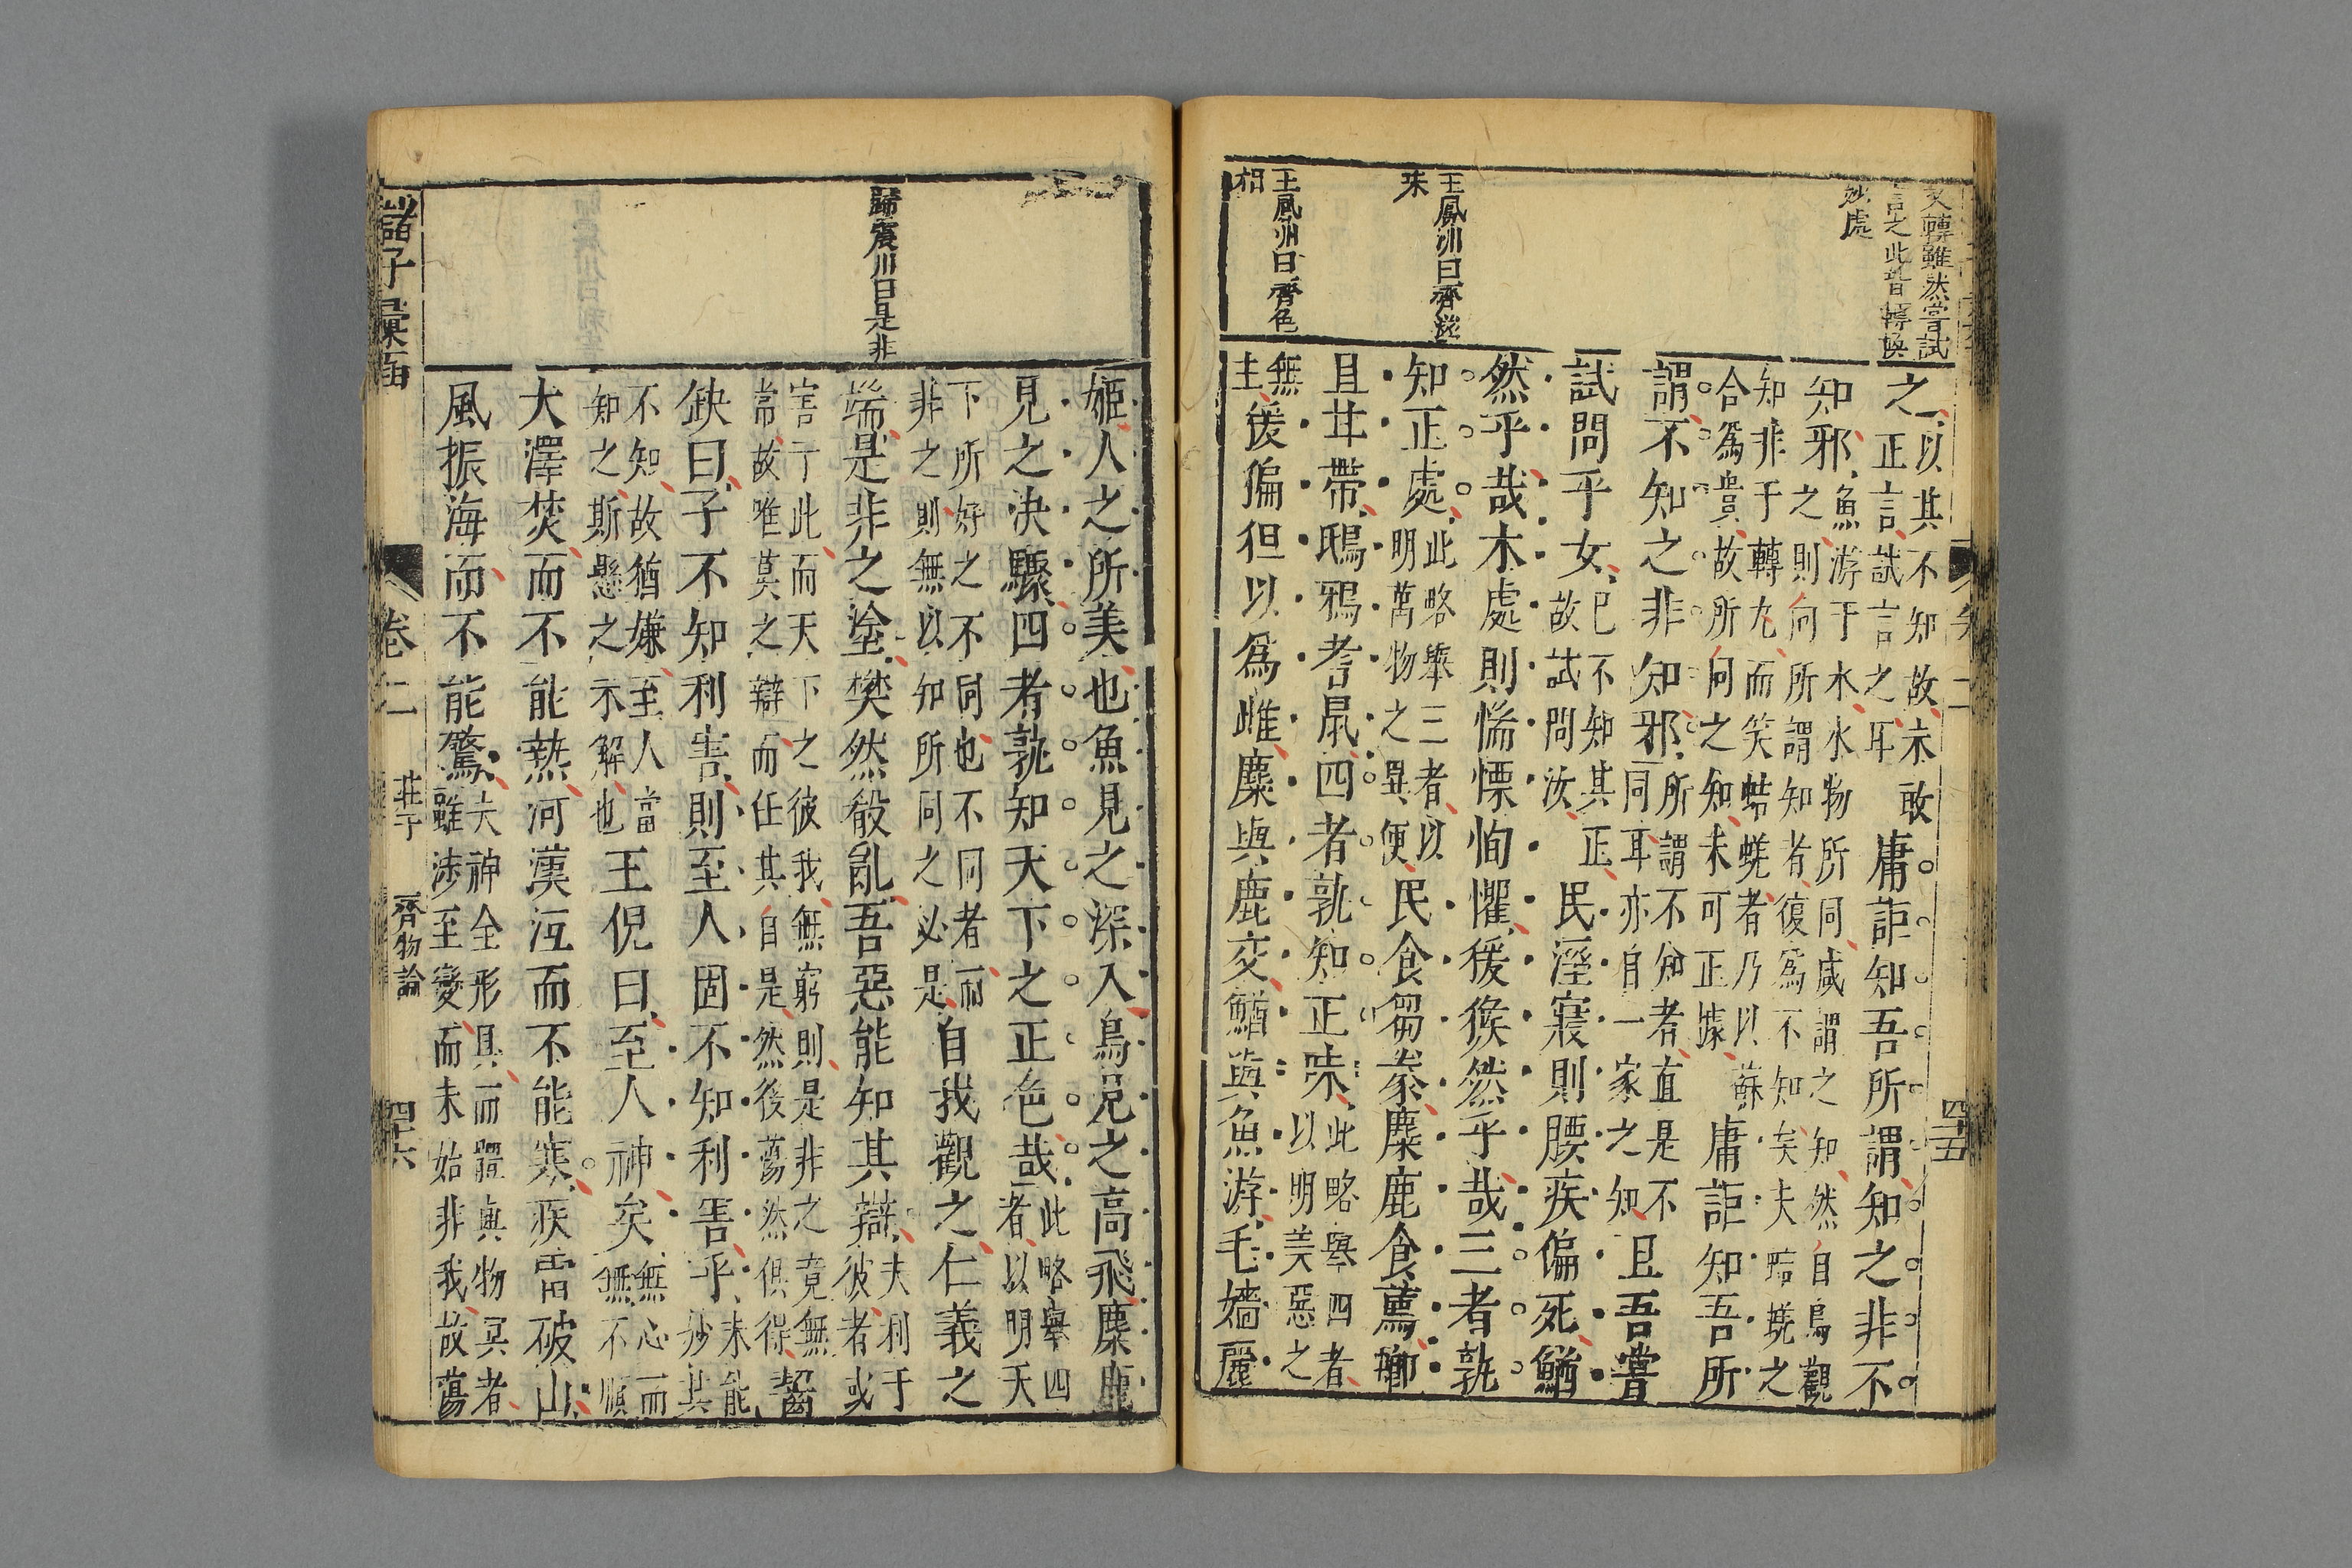 又轉雖然嘗試
言之此皆轉換
妙處
王鳳洲曰齊滋
味
王鳳洲曰齊色
相
之以其不知故未敢正言試言之耳庸詎知吾所謂知之非不
知邪魚游于水水物所同咸謂之知然自鳥觀之則向所謂知者復爲不知矣夫蛣蜣之
知非于轉丸而笑蛣蜣者乃以蘇合爲貴故所同之知未可正據庸詎知吾所
謂不知之非知邪所謂不知者直是不同耳亦自一家之知且吾嘗
試問乎女巳不知其正故試問汝民溼寢則腰疾偏死鰌
然乎哉木處則惴慄恂懼猨猴然乎哉三者孰
知正處此略舉三者以明萬物之異便民食芻豢麋鹿食薦蝍
且甘帶鴟鴉耆鼠四者孰知正味此略舉四者以明美惡之
無主猨猵狙以爲雌麋與鹿交鰌與魚游毛嬙麗
卷二
四十五
歸震川曰是非
姬人之所美也魚見之深入鳥見之高飛麋鹿
見之決驟四者孰知天下之正色哉此略舉四者以明天
下所好之不同也不同者而非之則無以知所同之必是自我觀之仁義之
端是非之塗樊然殽亂吾惡能知其辯夫利于彼者或
害于此而天下之彼我無窮則是非之竟無常故唯莫之辯而任其自是然後蕩然俱得齧
缺曰子不知利害則至人固不知利害乎未能妙其
不知故猶嫌至人當知之斯懸之未解也王倪曰至人神矣無心而無不順
大澤焚而不能熱河漢沍而不能寒疾雷破山
風振海而不能驚夫神全形具而體與物冥者雖涉至變而未始非我故蕩
諸子彙函
卷二
莊子
齊物論
四十六